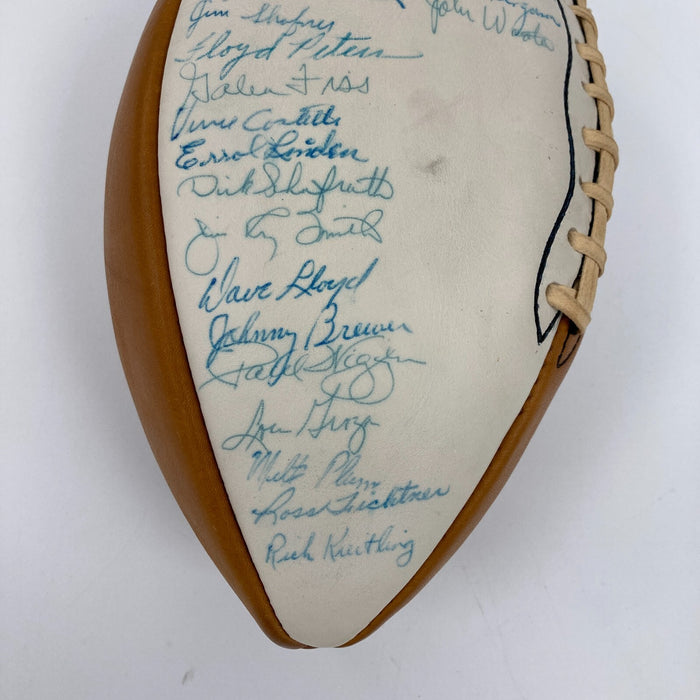 Jim Shofner
John Wooten
Floyd Peters
Galen Fiss
Vince Costello
Errol Linden
Dick Schafrath
Jim Ray Smith
Dave Lloyd
Johnny Brewer
Paul Wiggin
Lou Groza
Milt Plum
Ross Fichtner
Rich Kreitling